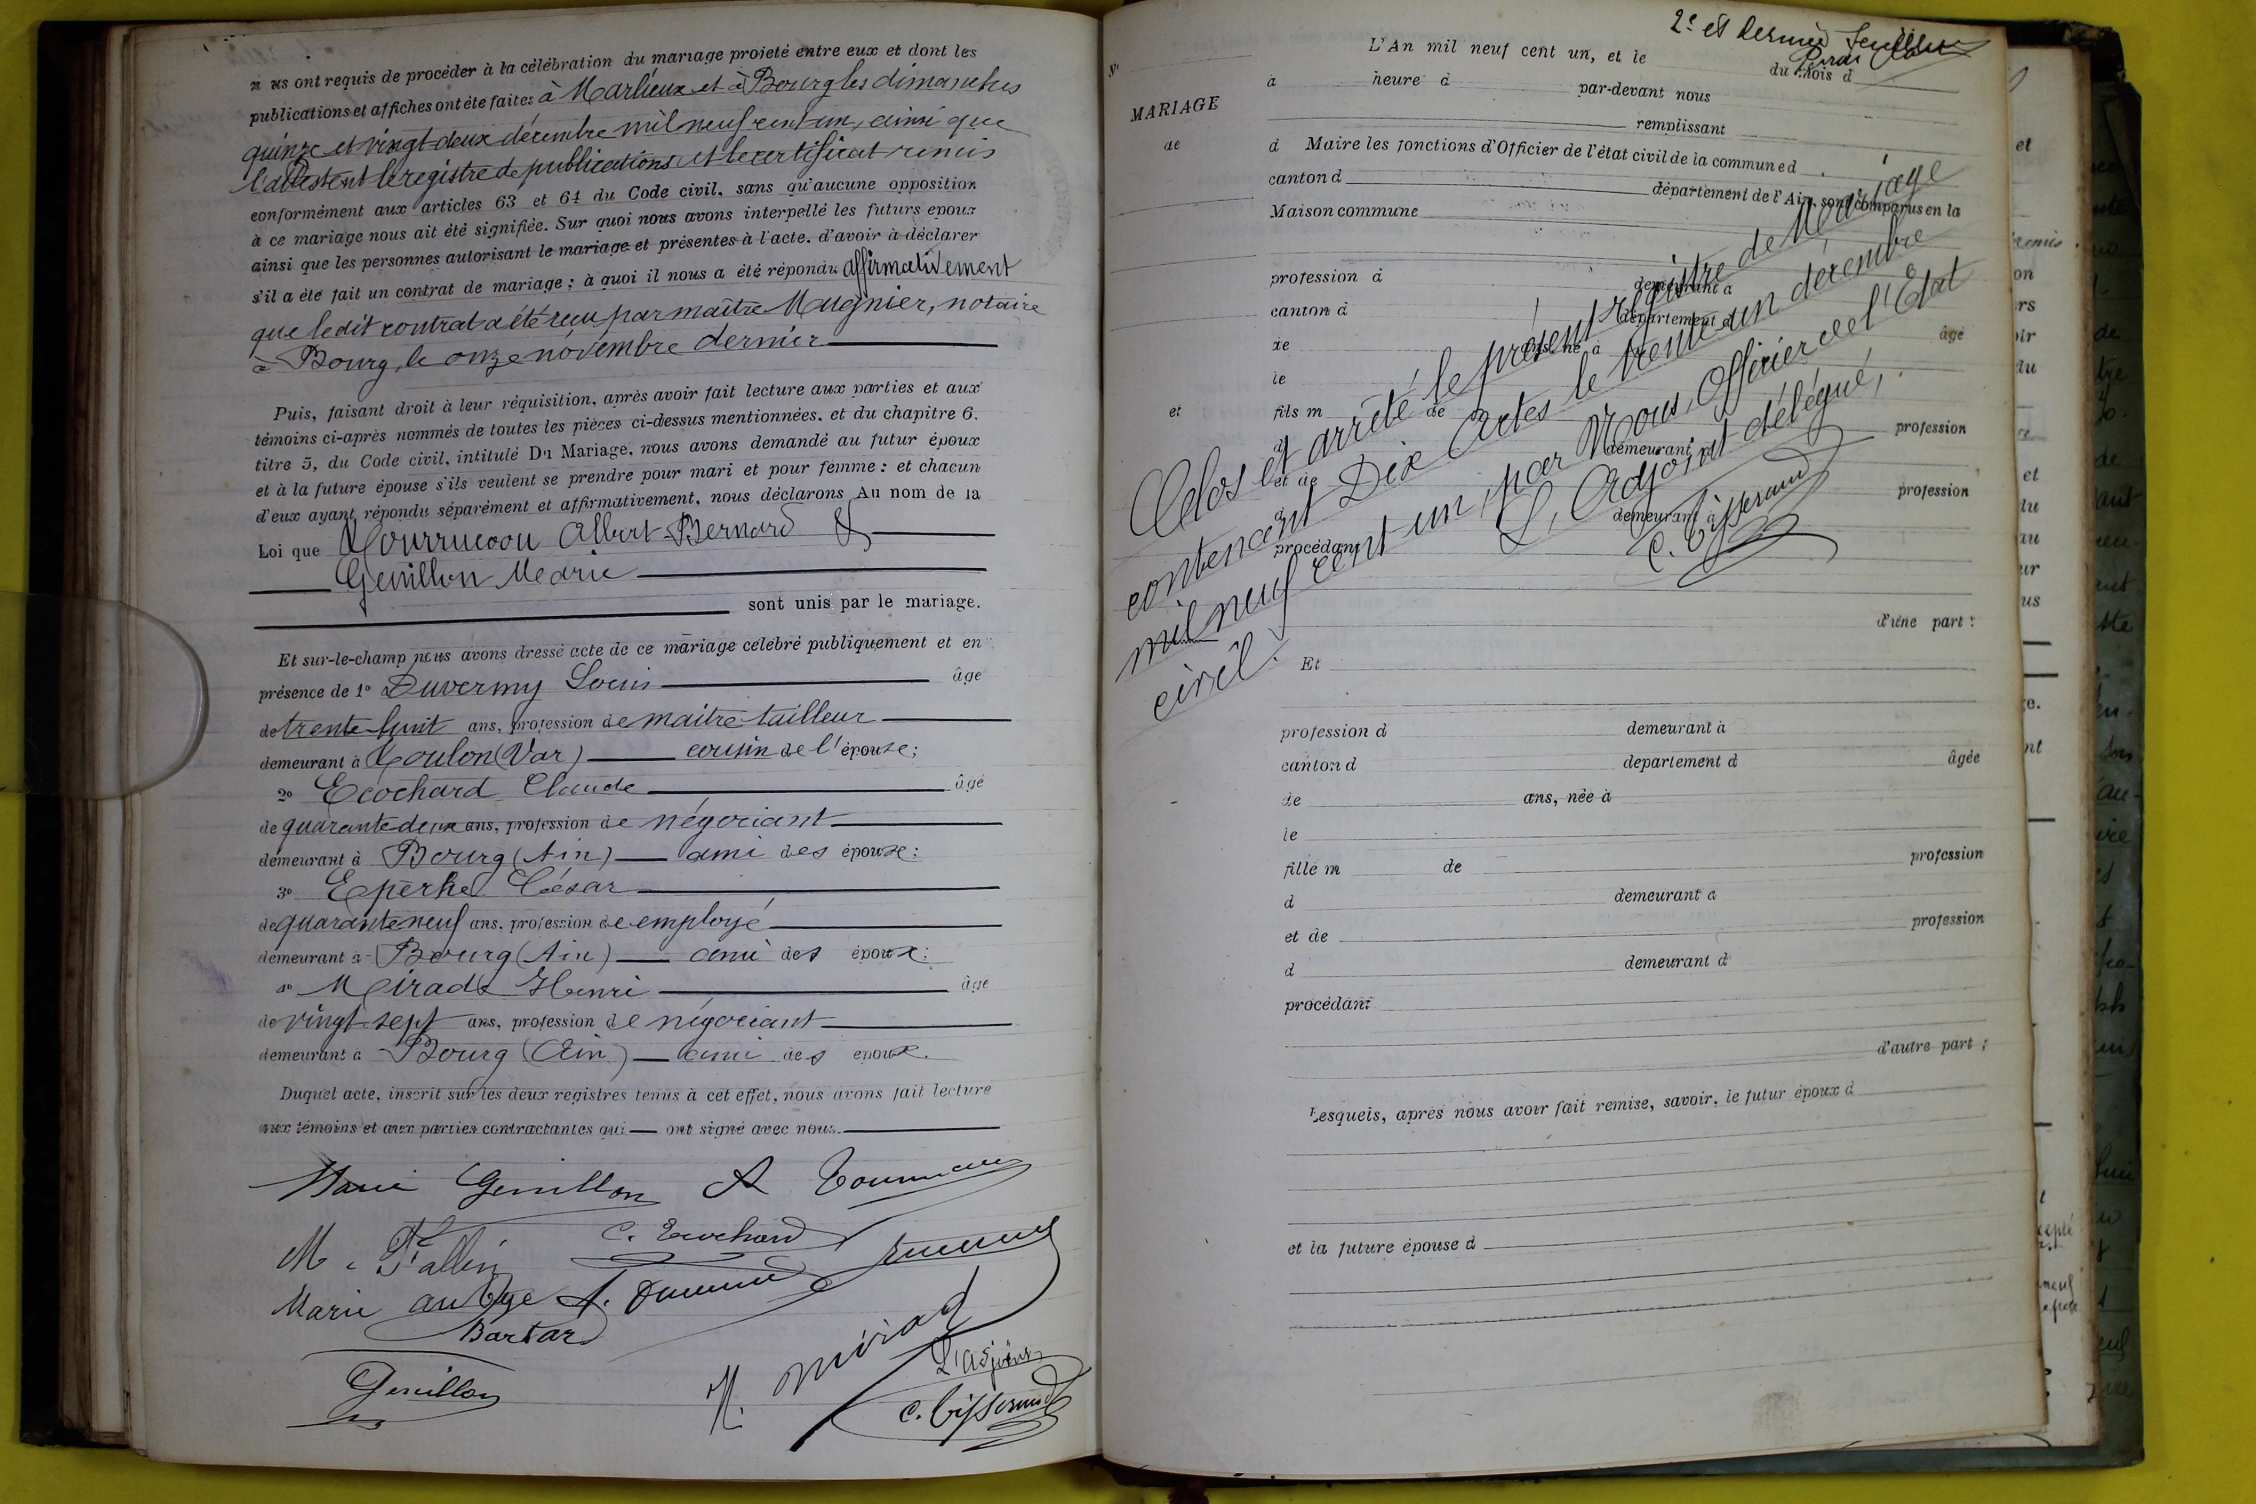 nous ont requis de procéder à la célébration du mariage projeté entre eux et dont les
publications et affiches ont été faites à Marlieux et à Bourg les dimanches
quinze et vingt-deux décembre mil neuf cent un, ainsi que
l'attestent le registre de publications et le certificat remis
conformément aux articles 63 et 64 du Code civil, sans qu'aucune opposition
à ce mariage nous ait été signifiée. Sur quoi nous avons interpellé les futurs époux
ainsi que les personnes autorisant le mariage et présentes à l'acte, d'avoir à déclarer
s'il a été fait un contrat de mariage ; à quoi il nous a été répondu affirmativement
que ledit contrat a été reçu par maître Mugnier, notaire
à Bourg, le onze novembre dernier
Puis, faisant droit à leur réquisition, après avoir fait lecture aux parties et aux
témoins ci-après nommés de toutes les pièces ci-dessus mentionnées, et du chapitre 6,
titre 5, du Code civil, intitulé Du Mariage, nous avons demandé au futur époux
et à la future épouse s'ils veulent se prendre pour mari et pour femme : et chacun
d'eux ayant répondu séparément et affirmativement, nous déclarons Au nom de la
Loi que Albert Bernard &
Genillon Marie
sont unis par le mariage.
Et sur-le-champ nous avons dressé acte de ce mariage célébré publiquement et en
présence de 1° Duvermy Louis âgé
de trente-huit ans, profession de maître tailleur
demeurant à Toulon (Var) cousin de l'épouse ;
2° Ecochard Claude âgé
de quarante deux ans, profession de négociant
demeurant à Bourg (Ain) ami des époux ;
3° César
de quarante neuf ans, profession de employé
demeurant à Bourg (Ain) ami des époux ;
4° Henri âgé
de vingt-sept ans, profession de négociant
demeurant à Bourg (Ain) ami des époux.
Duquel acte, inscrit sur les deux registres tenus à cet effet, nous avons fait lecture
aux témoins et aux parties contractantes qui ont signé avec nous.
Marie Genillon A
M. C. Ecochard
Marie
Genillon
L'Adjoint
C. Tisserand
2e et dernier feuillet
N°
L'An mil neuf cent un, et le
du mois d
à heure à par-devant nous
MARIAGE
remplissant
de
d Maire les fonctions d'Officier de l'état civil de la commune d
canton d département de l'Ain, sont comparus en la
Maison commune
profession d demeurant à
canton d département d
de ans, né à âgé
le
et
fils m de profession
d demeurant à
et de profession
d demeurant à
procédant
d'une part :
Clos et arrêté le présent registre de Mariage
contenant Dix Actes le trente un décembre
mil neuf cent un, par Nous, Officier de l'Etat
civil.
L'Adjoint délégué,
C. Tisserand
Et
profession d demeurant à
canton d département d âgée
de ans, née à
le
fille m de profession
d demeurant à
et de profession
d demeurant d
procédant
d'autre part ;
Lesquels, après nous avoir fait remise, savoir, le futur époux d
et la future épouse d